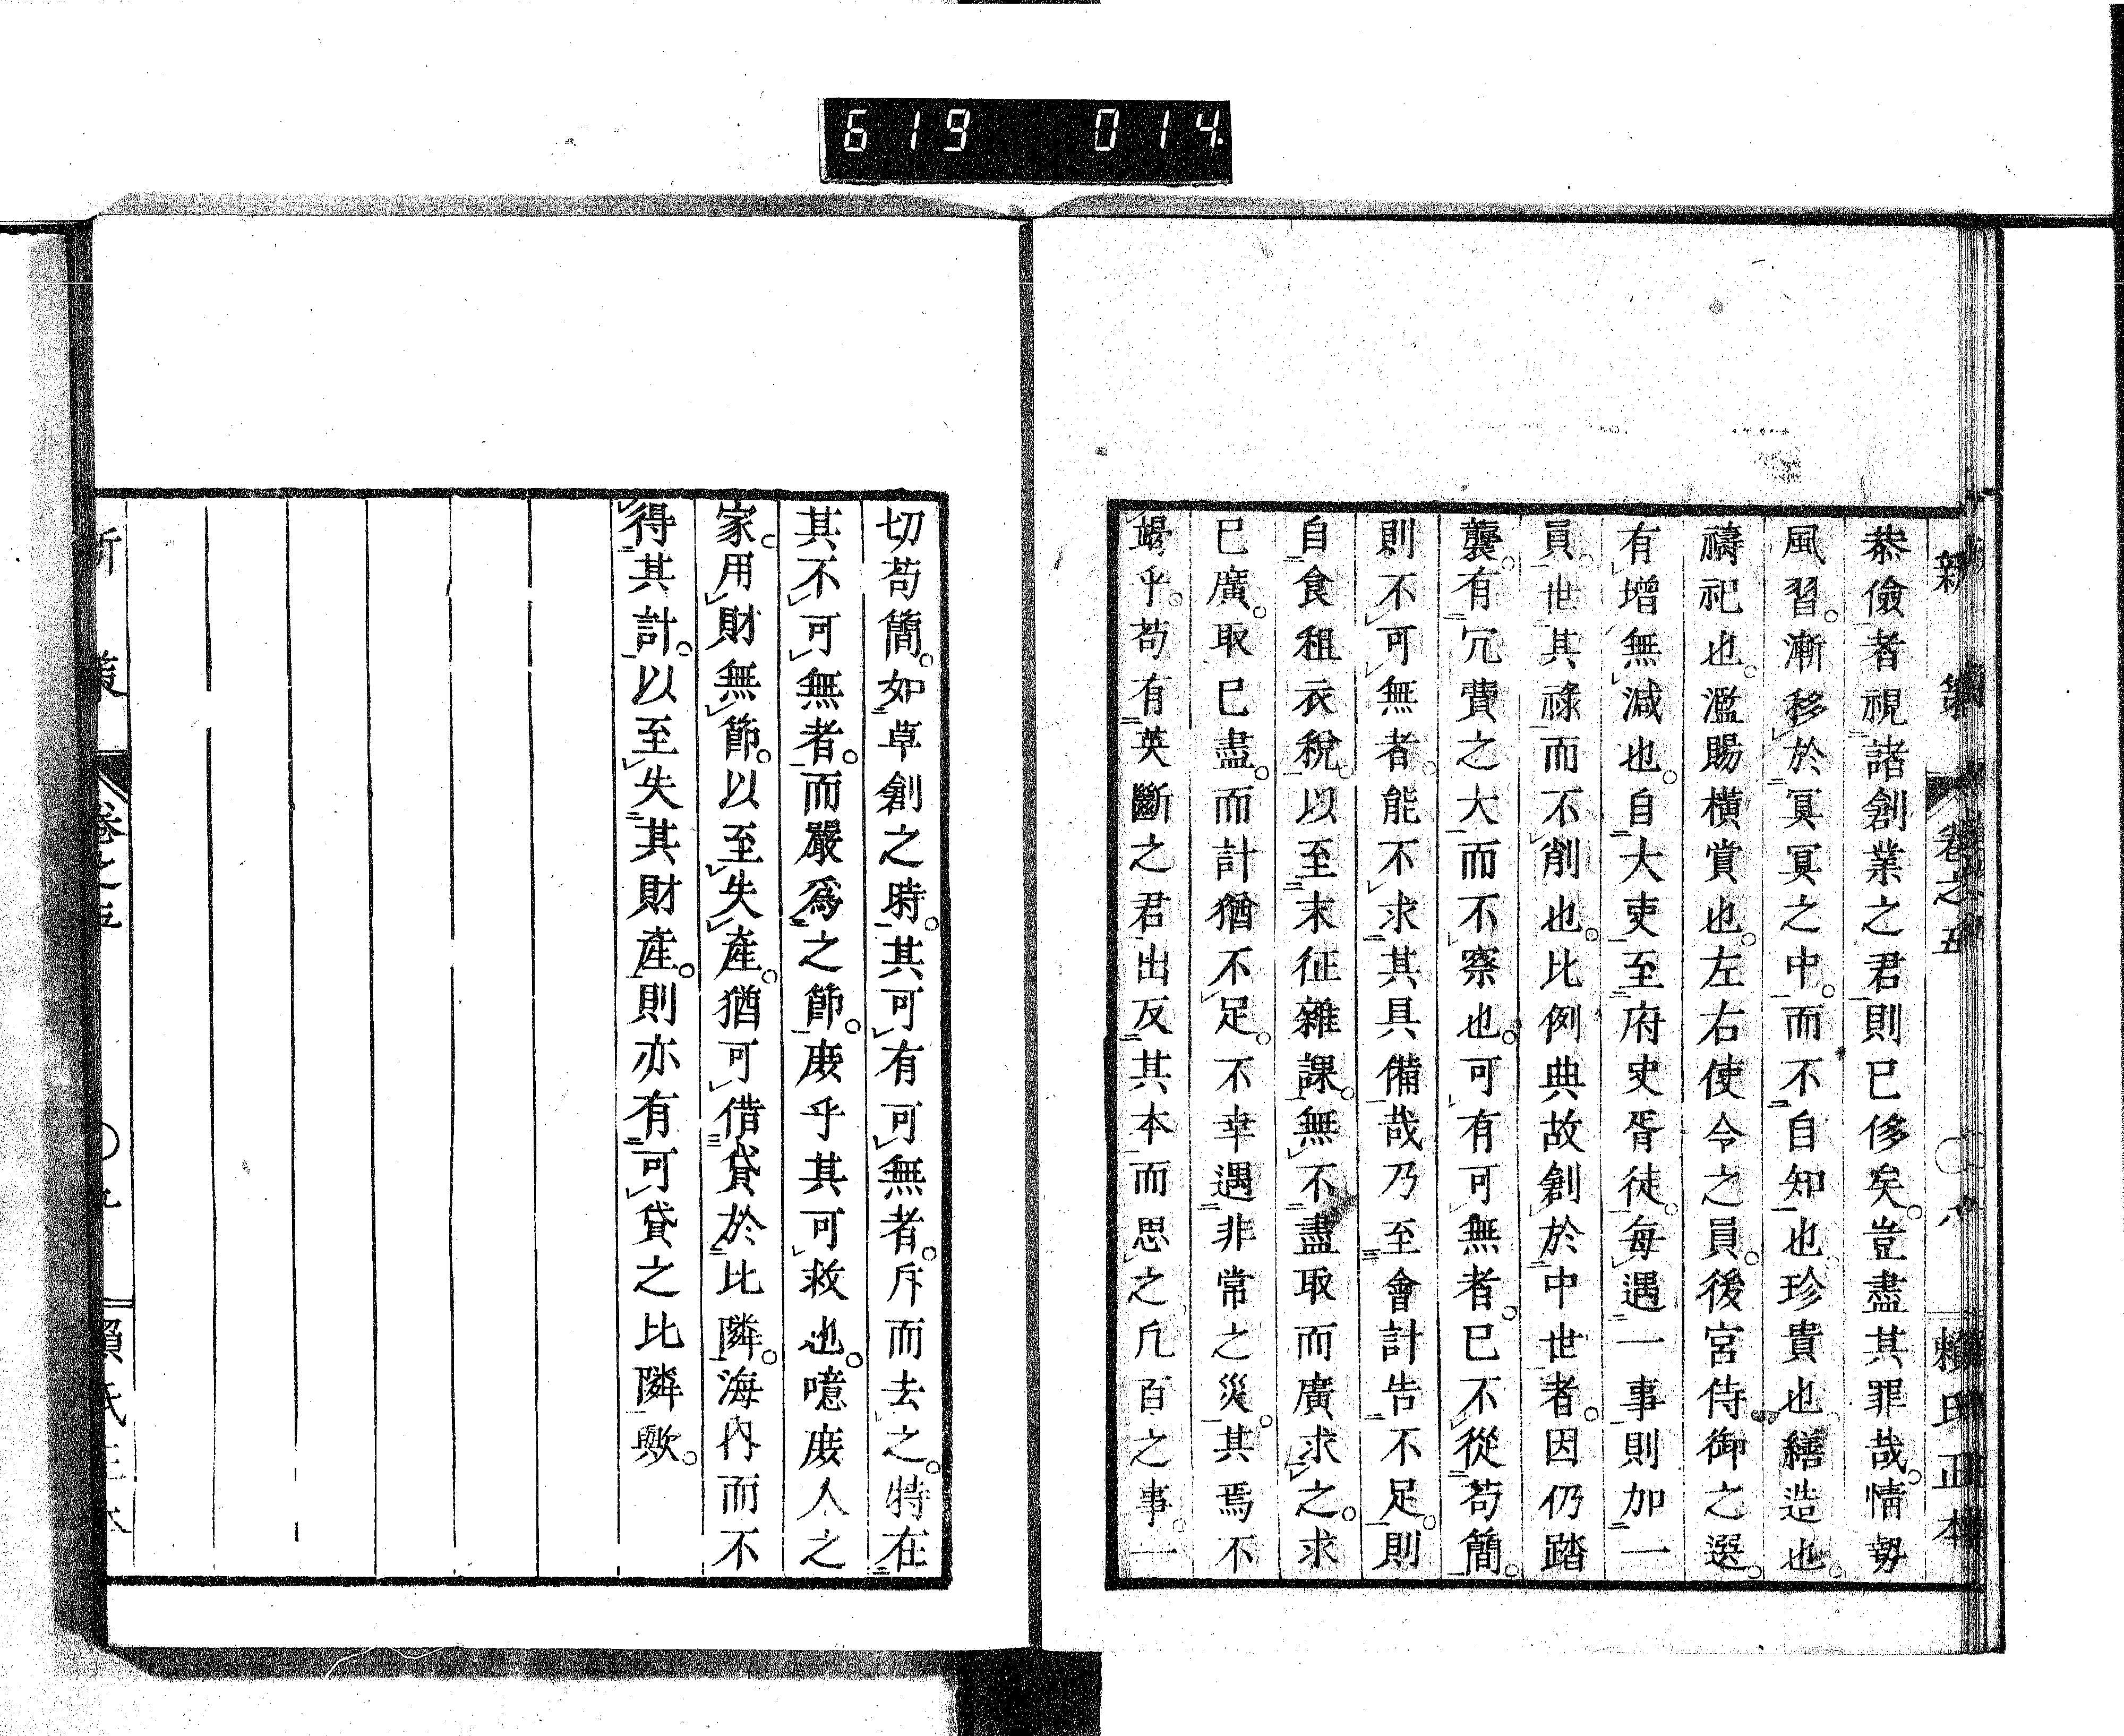 619 014
新策 卷之五 〇八 賴氏正本
恭儉者視諸創業之君則已侈矣。豈盡其罪哉。情勢
風習。漸移於冥冥之中。而不自知也珍貴也繕造也。
禱祀也。濫賜橫賞也。左右使令之員。後宮侍御之選。
有增無減也。自大吏至府史胥徒。每遇一事則加一
員。世其祿而不削也。比例典故創於中世者。因仍踏
襲。有冗費之大而不察也。可有可無者。已不從苟簡。
則不可無者。能不求其具備哉乃至會計告不足。則
自食租衣稅。以至末征雜課。無不盡取而廣求之。求
已廣。取已盡。而計猶不足。不幸遇非常之災。其焉不
竭乎。苟有英斷之君出反其本而思之凡百之事。一
切苟簡。如草創之時。其可有可無者。斥而去之。特在
其不可無者。而嚴爲之節。庶乎其可救也。噫庶人之
家。用財無節。以至失產。猶可借貸於比隣。海內而不
得其計。以至失其財產。則亦有可貸之比隣歟。
新策 卷之五 〇九 賴氏正本